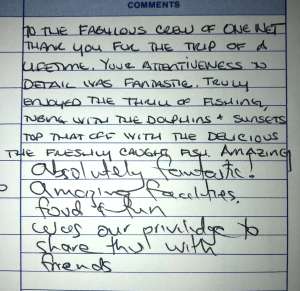 COMMENTS
TO THE FABULOUS CREW OF ONE NET
THANK YOU FOR THE TRIP OF A
LIFETIME. YOUR ATTENTIVENESS TO
DETAIL WAS FANTASTIC. TRULY
ENJOYED THE THRILL OF FISHING,
TUBING WITH THE DOLPHINS + SUNSETS
TOP THAT OFF WITH THE DELICIOUS
THE FRESHLY CAUGHT FISH AMAZING
Absolutely fantastic!
amazing facilities.
food & fun
was our priviledge to
share this with
friends